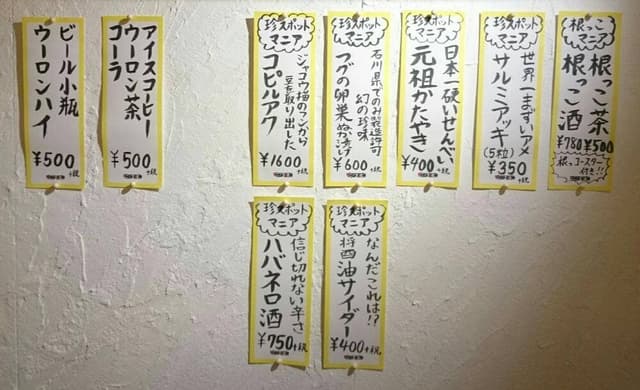 根っこ
マニア
根っこ茶
¥500
根っこ酒
¥780
根っこコースター
付き!!
珍スポット
マニア
世界一まずいアメ
サルミアッキ
(5粒)
¥350
+税
珍スポット
マニア
日本一硬いせんべい
元祖かたやき
¥400
+税
珍スポット
マニア
石川県でのみ製造許可
幻の珍味
フグの卵巣ぬか漬け
¥600
+税
珍スポット
マニア
ジャコウ猫のフンから
豆を取り出した
コピルアク
¥1600
+税
アイスコーヒー
ウーロン茶
コーラ
¥500
+税
ビール小瓶
ウーロンハイ
¥500
+税
珍スポット
マニア
なんだこれは!?
醤油サイダー
¥400
+税
珍スポット
マニア
信じ切れない辛さ
ハバネロ酒
¥750
+税